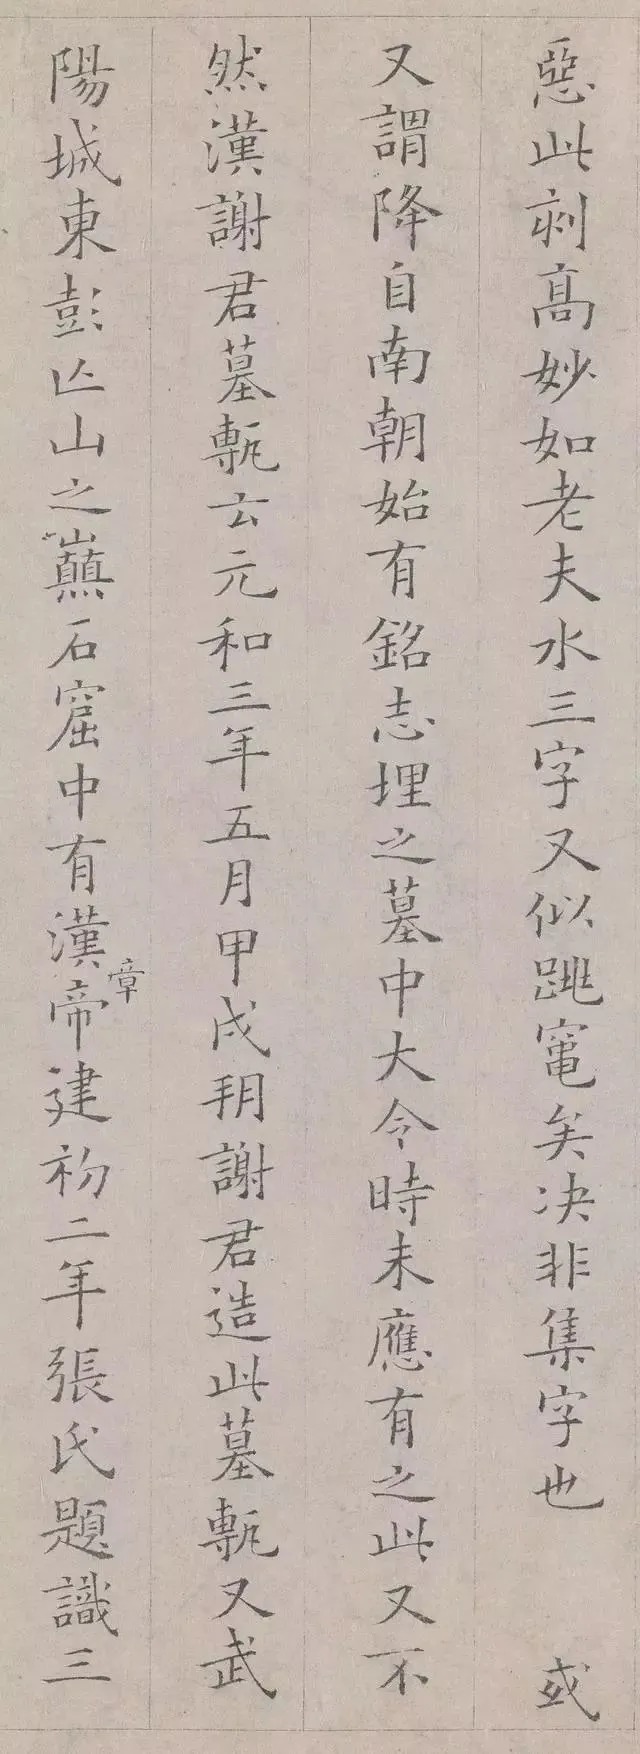 惡此刻高妙如老夫水三字又似跳竃矣决非集字也 或
又謂降自南朝始有銘志埋之墓中大令時未應有之此又不
然漢謝君墓甎云元和三年五月甲戌朔謝君造此墓甎又武
陽城東彭亾山之巔石窟中有漢章帝建初二年張氏題識三